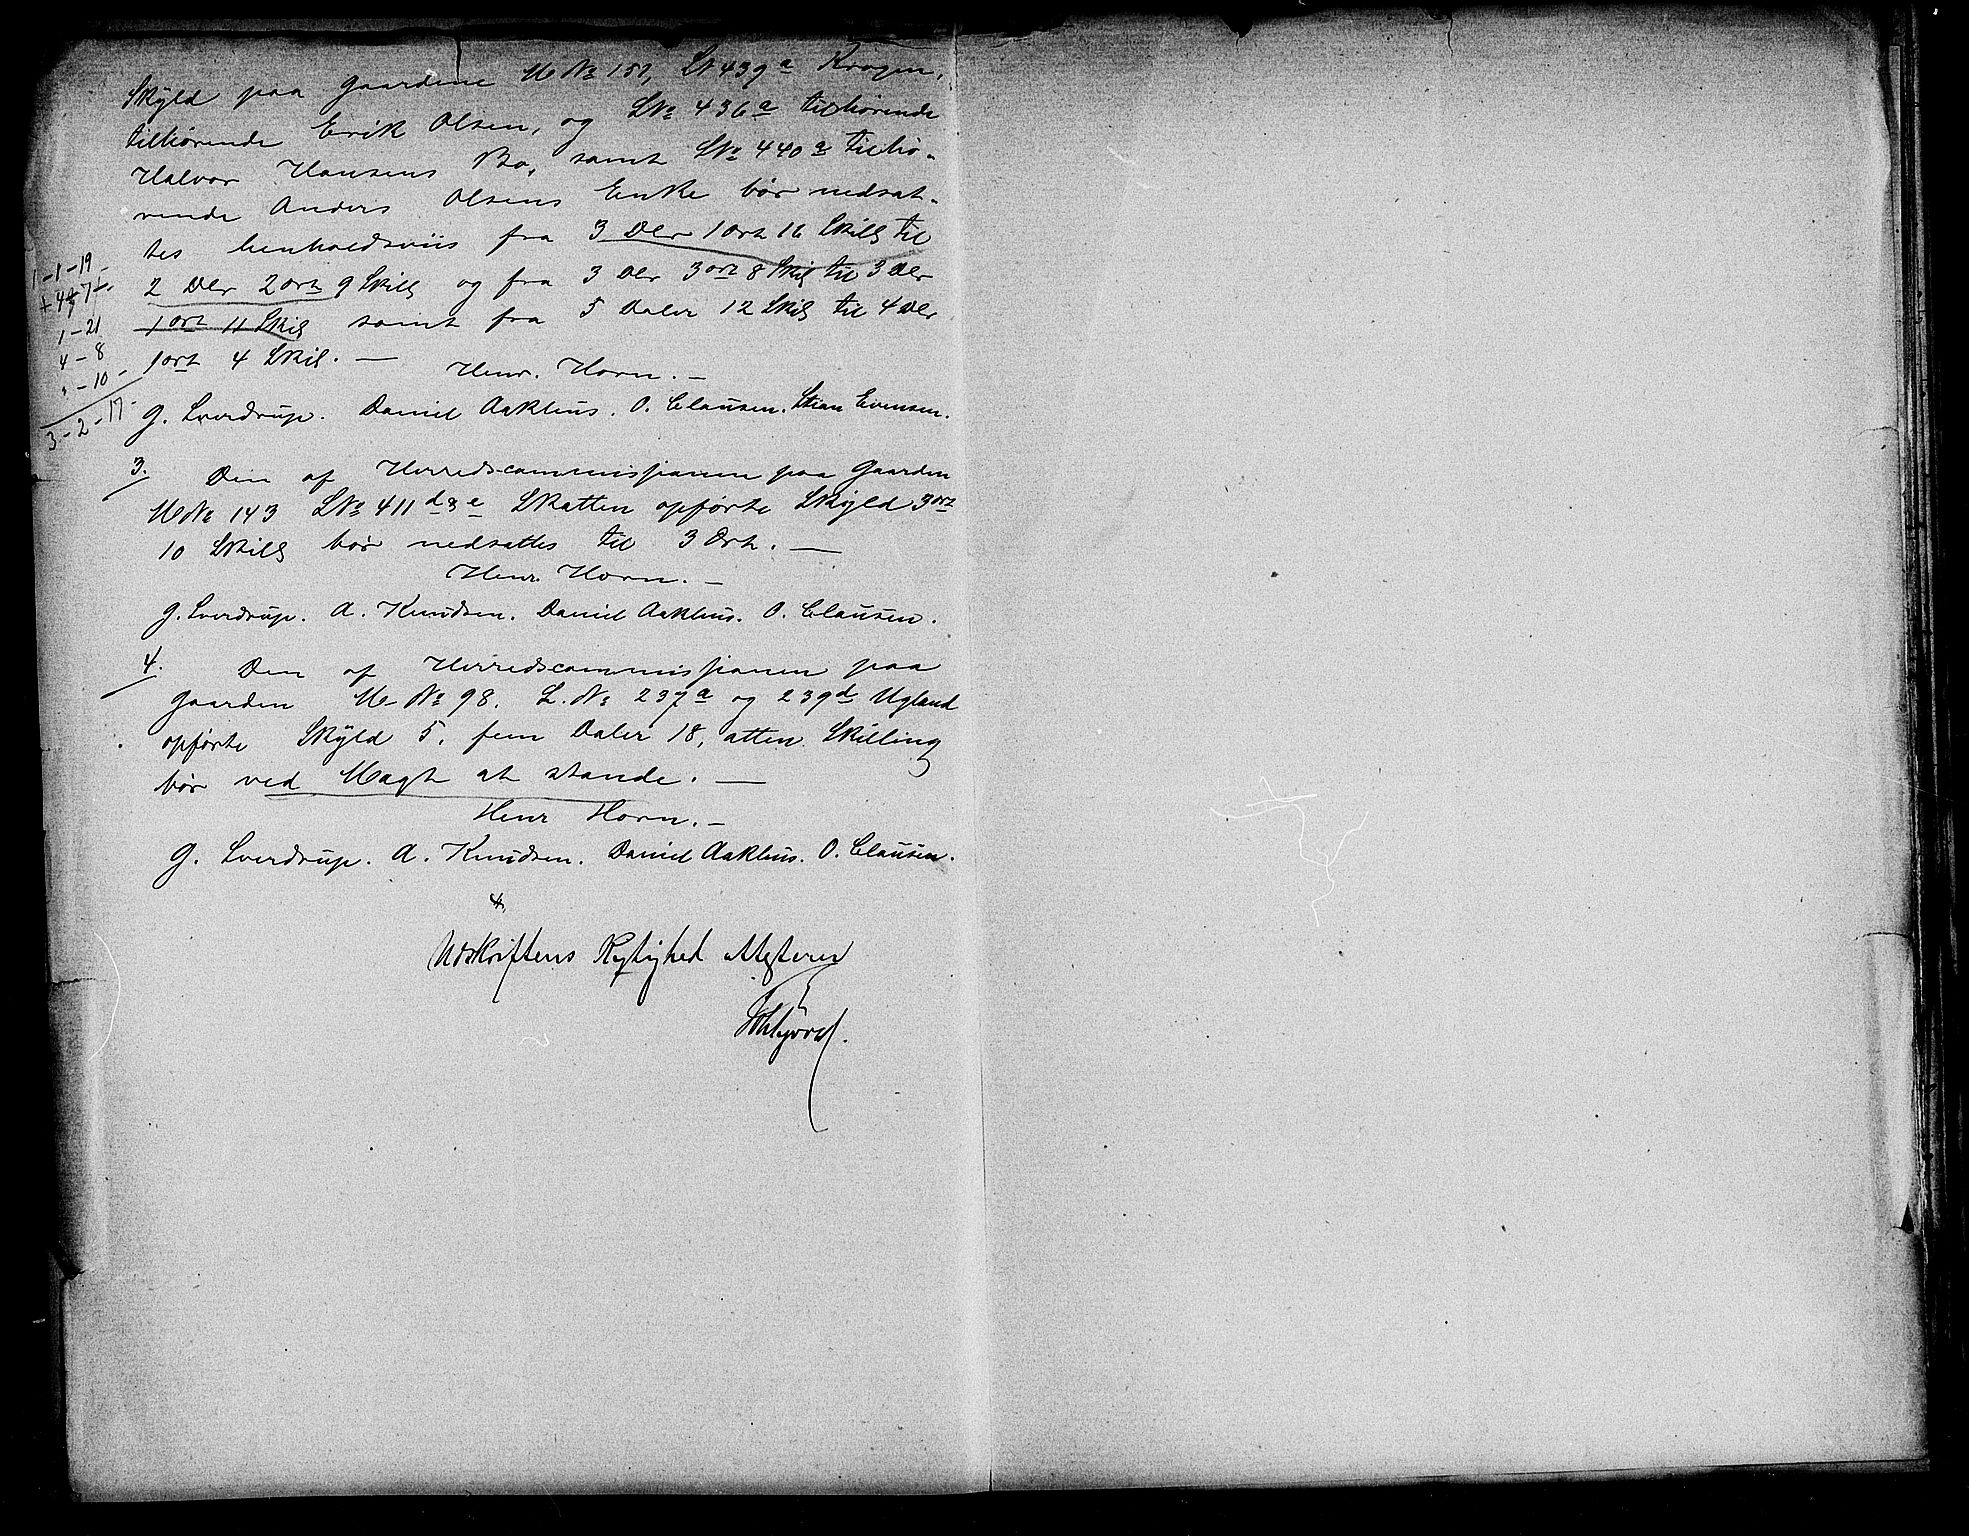 Skyld paa Gaardene M№ 151, L№ 439a Krogen,
tilhørende Erik Olsen, og L№ 436a tilhørende
Halvor Hansens Bo, samt L№ 440a tilhø-
rende Anders Olsens Enke bør nedsæt-
tes henholdsviis fra 3 Dlr 1 Ort 16 Skill til
2 Dlr 2 Ort 9 Skill og fra 3 Dlr 3 ort 8 Skil til 3 Dlr
1 ort 11 Skil samt fra 5 Daler 12 Skil til 4 Dlr
1 ort 4 Skil. —
1-1-19
1-21
4-8
-10-
3-2-17
Henr. Horn. —
G. Sverdrup. Daniel Aaklius. O. Clausen. Stian Evensen.
3. Den af Herredscommissionen paa Gaarden
M№ 143 L№ 411 d & e Skatten opførte Skyld 3 ort
10 Skill bør nedsættes til 3 Ort. —
Henr. Horn. —
G. Sverdrup. A. Knudsen. Daniel Aaklius. O. Clausen.
4. Den af Herredscommissionen paa
Gaarden M№ 98. L.№ 237a og 239d Ugland
opførte Skyld 5, fem Daler 18, atten Skilling
bør ved Magt at stande. —
Henr Horn. —
G. Sverdrup. A. Knudsen. Daniel Aaklius. O. Clausen.
Udskriftens Rigtighed attesterer